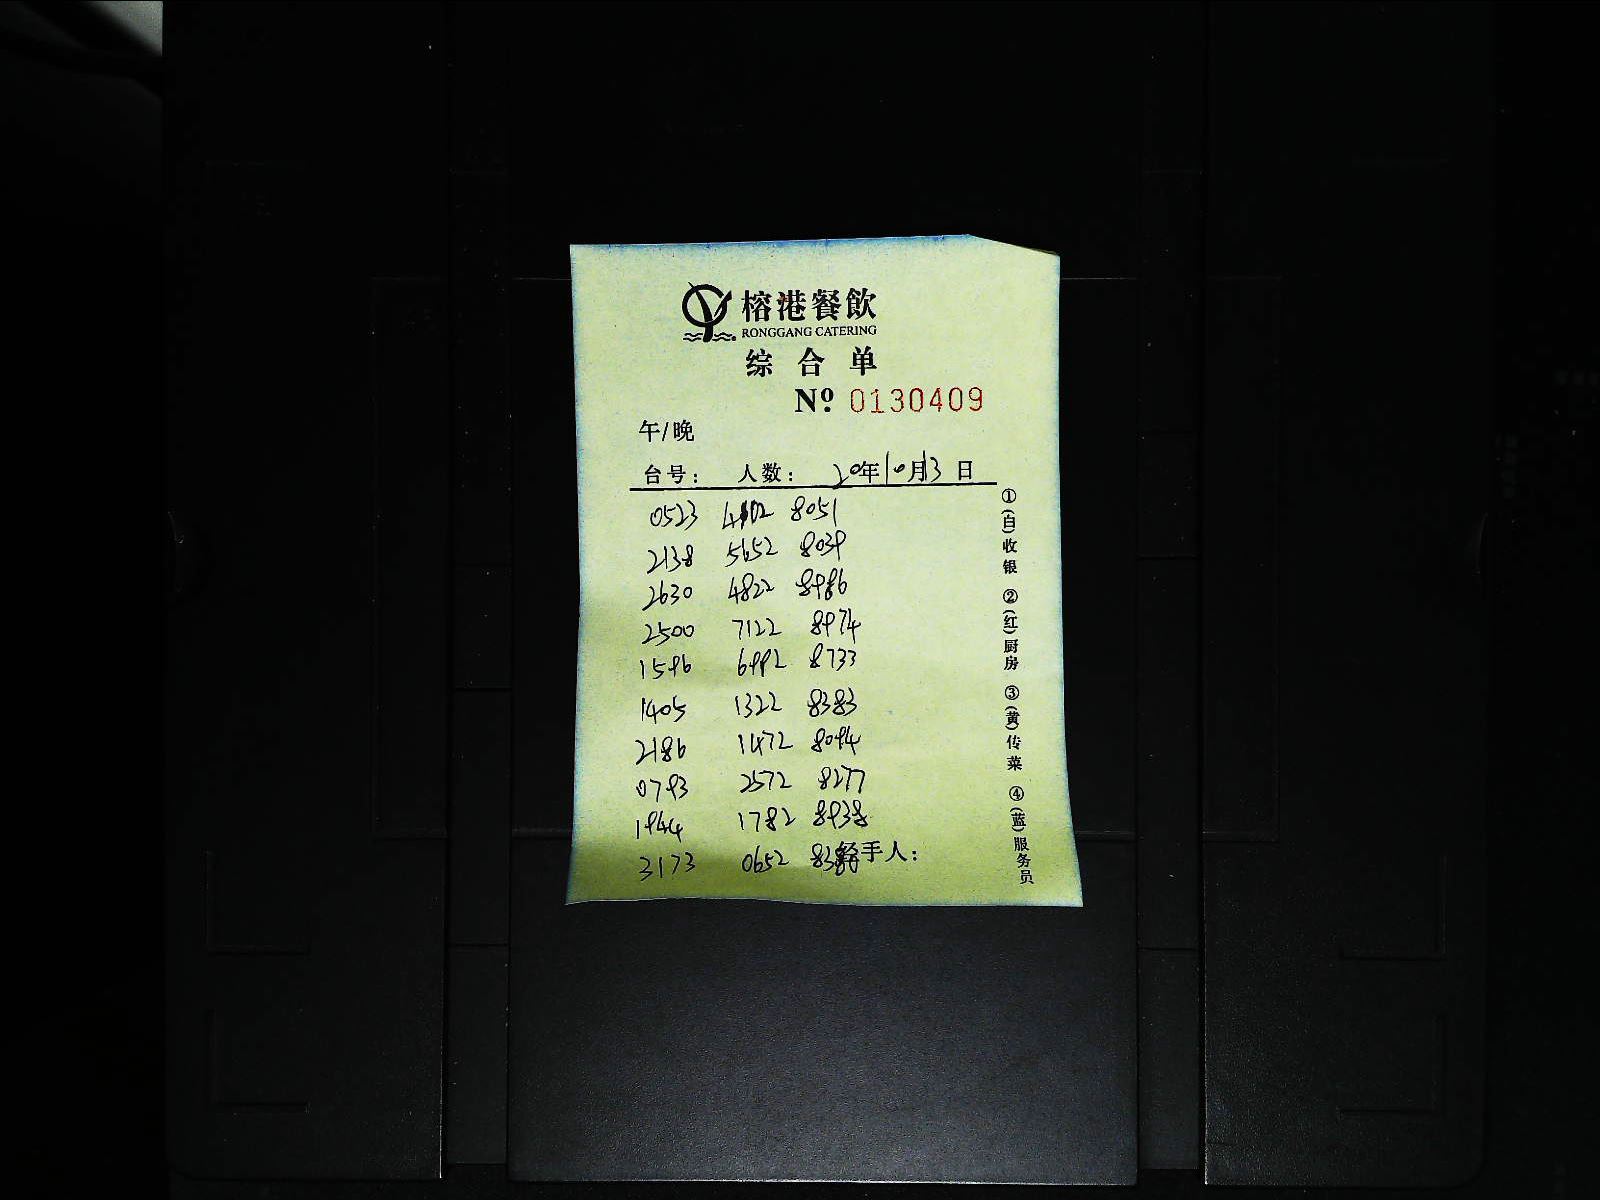 榕港餐飲
RONGGANG CATERING
综合单
Nº 0130409
午/晚
台号: 人数: 20年10月13日
0523 4102 8051
2138 5652 8039
2630 4822 8986
2500 7122 8974
1596 6992 8733
1405 1322 8383
2186 1472 8094
0793 2572 8277
1944 1782 8938
3173 0652
经手人:
①(白)收银 ②(红)厨房 ③(黄)传菜 ④(蓝)服务员